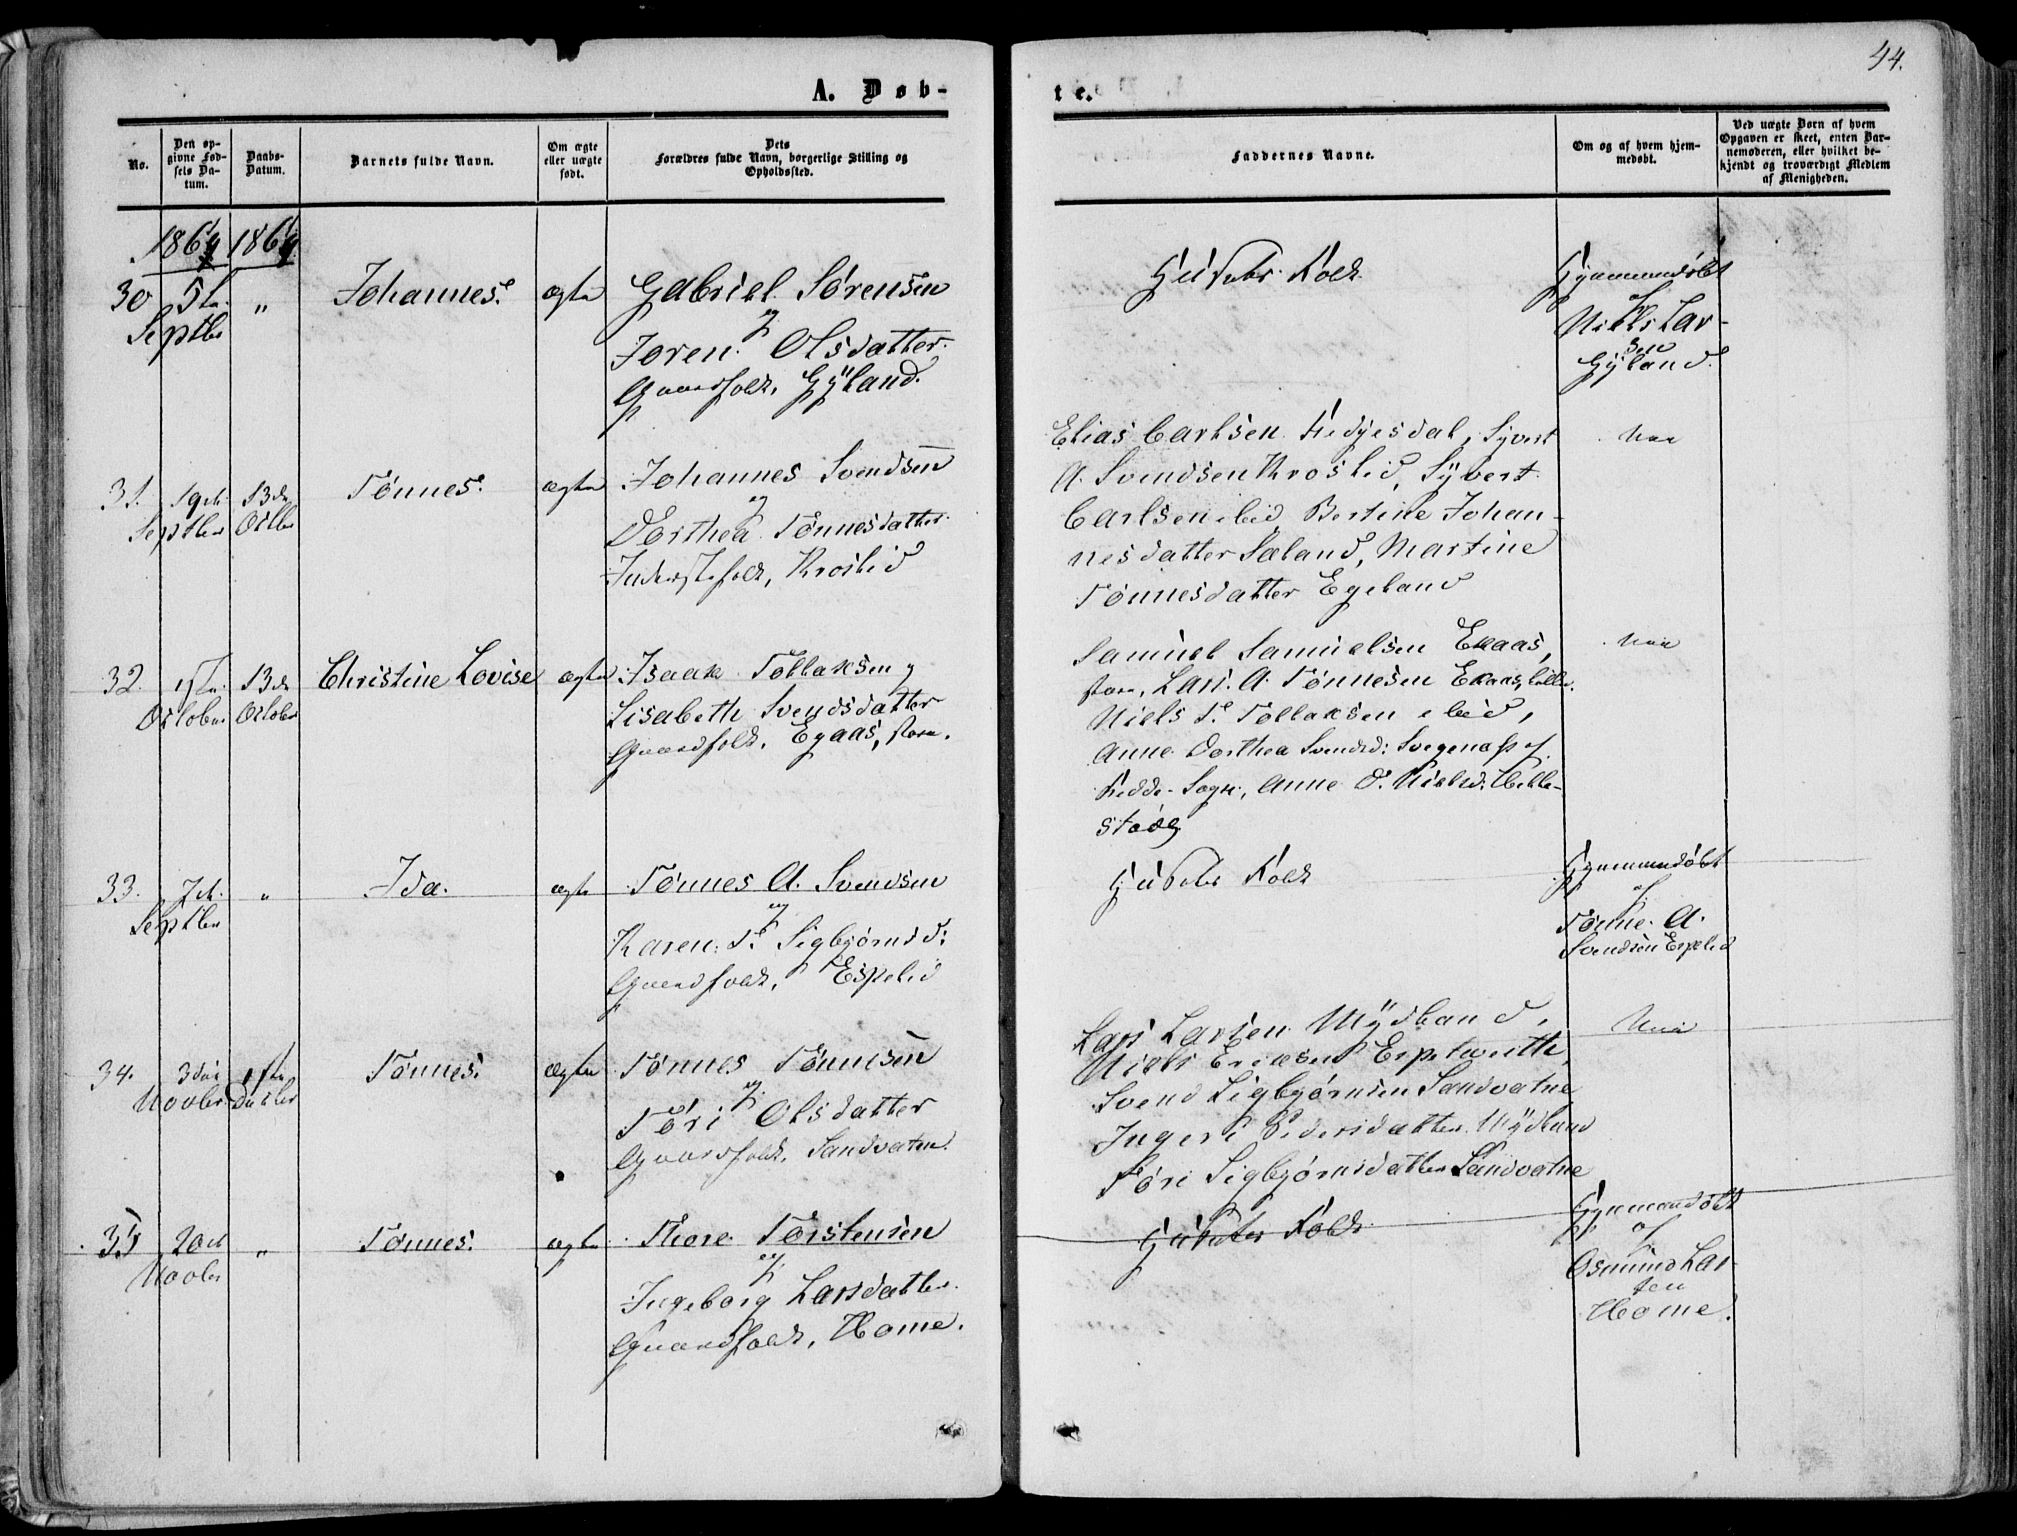 44.
A. Døb-
te.
No.
Den op-
givne Fød-
sels Da-
tum.
Daabs-
Datum.
Barnets fulde Navn.
Om ægte
eller uægte
født.
Dets
Forældres fulde Navn, borgerlige Stilling og
Opholdssted.
Faddernes Navne.
Om og af hvem hjem-
medøbt.
Ved uægte Børn af hvem
Opgaven er skeet, enten Bar-
nemoderen, eller hvilket be-
kjendt og troværdigt Medlem
af Menigheden.
1864 1864
30 5te " Johannes. ægte Gabriel Sørensen
Septbr og
Joren Olsdatter
Gaardfolk, Gyland.
Husets Folk
Hjemmedøbt
af
Niels Lar-
sen
Gyland.
31. 19de 13de Tønnes. ægte Johannes Svendsen
Septber Octbr og
Dorthea Tønnesdatter
Inderstefolk, Kroslid
Elias Carlsen Fedjesdal, Syvert
A. Svendsen Kroslid, Syvert
Carlsen ibid, Bertine Johan-
nesdatter Sæland, Martine
Tønnesdatter Egeland
Nei
32. 1ste 13de Christine Lovise ægte Isaak Tollaksen og
October October Lisabeth Svendsdatter
Gaardfolk, Egaas, store.
Samuel Samuelsen Ekaas,
store, Lars A. Tønnesen Ekaas, lille.
Niels T. Tollaksen ibid,
Anne Dorthea Svendsd:
Fedde Sogn, Anne O. Nielsd. Helle-
stød
Nei
33. 7de " Ida. ægte Tønnes A. Svendsen
Septber og
Karen T. Sigbjørnsd:
Gaardfolk, Espelid
Husets Folk
Hjemmedøbt
af
Tønne A.
Svendsen Espelid
34. 3die 1ste Tønnes. ægte Tønnes Tønnesen
Novbr Decbr og
Tøri Olsdatter
Gaardfolk, Sandvatne.
Lars Larsen Mydland,
Niels Ericksen Espetveith,
Svend Sigbjørnsen Sandvatne
Ingeri Pedersdatter Mydland
Tøri Sigbjørnsdatter Sandvatne
Nei
35 20de " Tønnes. ægte Thore Torstensen
Novber og
Ingeborg Larsdatter
Gaardfolk, Home.
Husets Folk
Hjemmedøbt
af
Osmund Lar-
sen
Home.